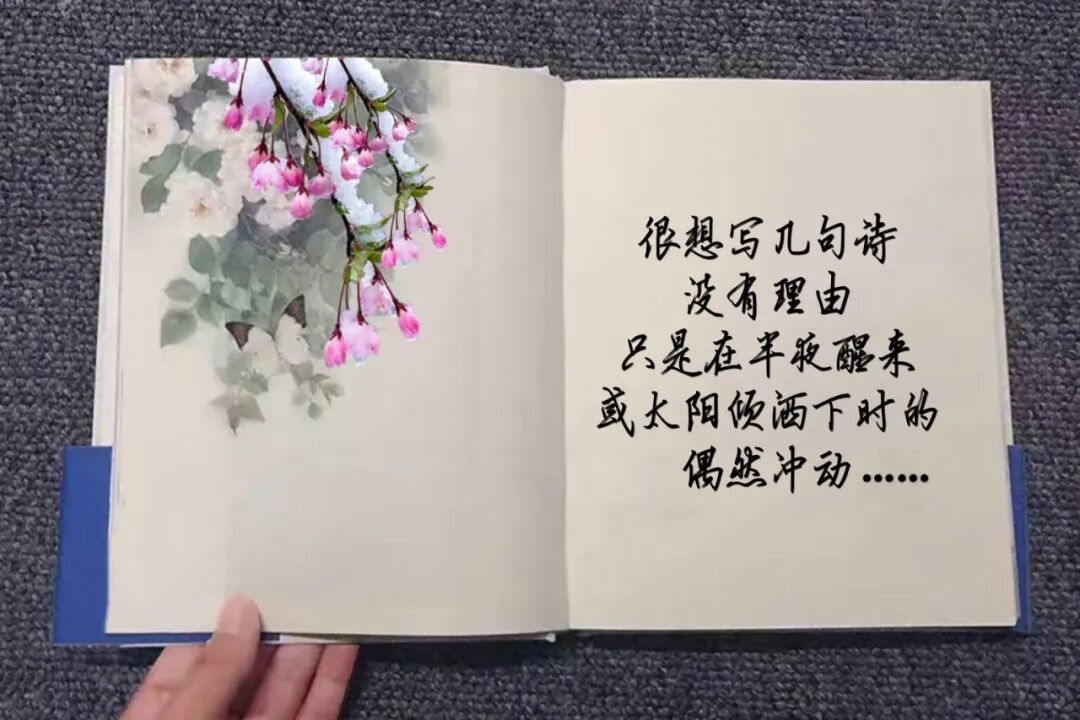 很想写几句诗
没有理由
只是在半夜醒来
或太阳倾洒下时的
偶然冲动……